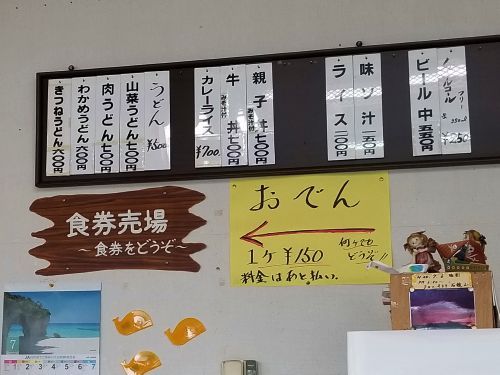 ノンアルコール
フリー
350ml
¥250
ビール中 五五〇円
味ソ汁 二〇〇円
ライス 二〇〇円
親子丼 七〇〇円
みそ汁付
牛丼 七〇〇円
みそ汁付
カレーライス ¥700
うどん ¥500
山菜うどん 七〇〇円
肉うどん 七〇〇円
わかめうどん 六〇〇円
きつねうどん 六〇〇円
食券売場
～食券をどうぞ～
おでん
1ケ ¥150
何ケでも
どうぞ!!
料金はあと払い。
7